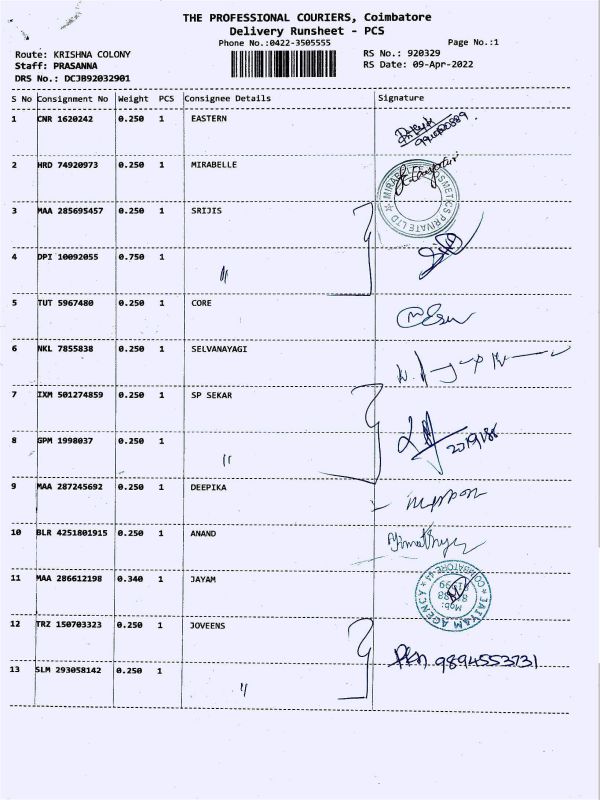 THE PROFESSIONAL COURIERS, Coimbatore
Delivery Runsheet - PCS
Phone No.:0422-3505555 Page No.:1
Route: KRISHNA COLONY RS No.: 920329
Staff: PRASANNA RS Date: 09-Apr-2022
DRS No.: DCJB92032901
S No Consignment No Weight PCS Consignee Details Signature
1 CNR 1620242 0.250 1 EASTERN
2 HRD 74920973 0.250 1 MIRABELLE
3 MAA 285695457 0.250 1 SRIJIS
4 DPI 10092055 0.750 1 "
5 TUT 5967480 0.250 1 CORE
6 NKL 7855838 0.250 1 SELVANAYAGI
7 IXM 501274859 0.250 1 SP SEKAR
8 GPM 1998037 0.250 1 "
9 MAA 287245692 0.250 1 DEEPIKA
10 BLR 4251801915 0.250 1 ANAND
11 MAA 286612198 0.340 1 JAYAM
12 TRZ 150703323 0.250 1 JOVEENS
9894553731
13 SLM 293058142 0.250 1 "